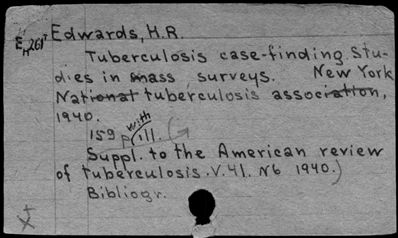 Edwards, H.R.
Tuberculosis case-finding. Stu-
dies in mass surveys. New York
National tuberculosis association,
1940.
159 p with ill.
Suppl. to the American review
of tuberculosis. V.41. N6 1940.)
Bibliogr.